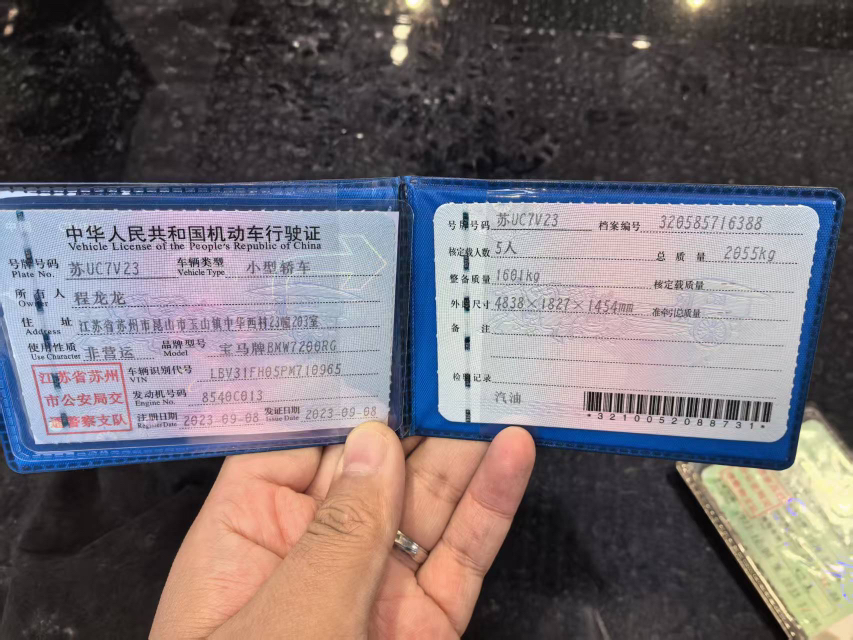 中华人民共和国机动车行驶证
Vehicle License of the People's Republic of China
号牌号码 Plate No. 苏UC7V23 车辆类型 Vehicle Type 小型轿车
所有人 Owner 程龙龙
住址 Address 江苏省苏州市昆山市玉山镇中华西村23幢203室
使用性质 Use Character 非营运 品牌型号 Model 宝马牌BMW7200RG
江苏省苏州市公安局交通警察支队
车辆识别代号 VIN LBV31FH05PM710965
发动机号码 Engine No. 8540C013
注册日期 Register Date 2023-09-08 发证日期 Issue Date 2023-09-08
号牌号码 苏UC7V23 档案编号 320585716388
核定载人数 5人 总质量 2055kg
整备质量 1601kg 核定载质量
外廓尺寸 4838×1827×1454mm 准牵引总质量
备注
检验记录
汽油
*3210052088731*